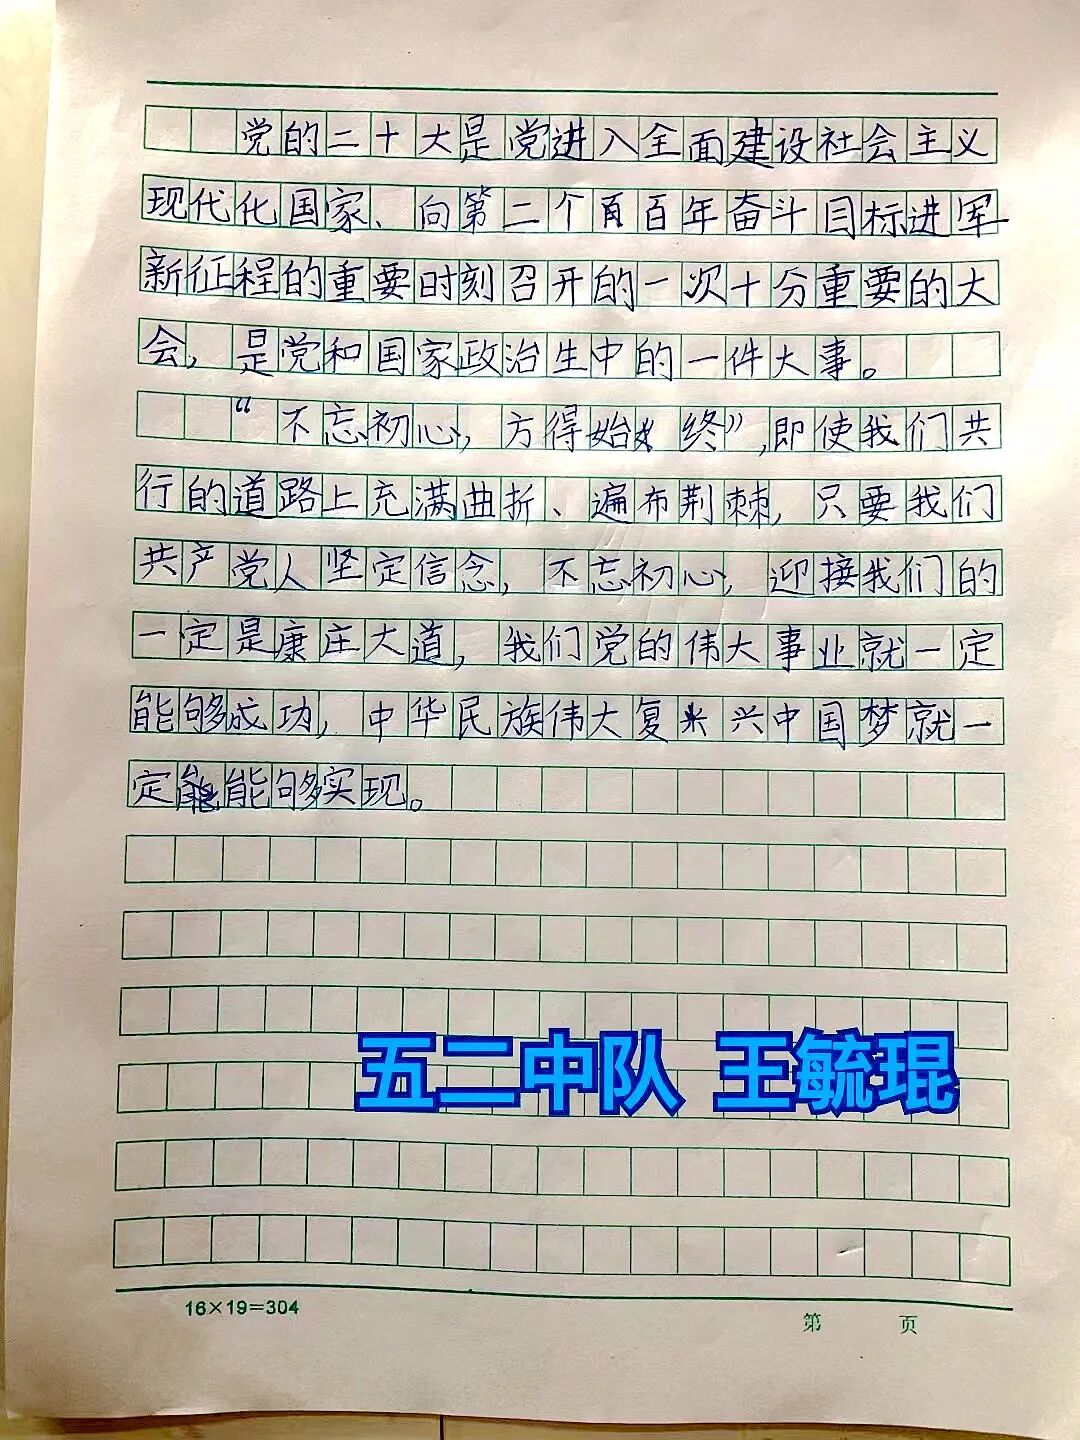 党的二十大是党进入全面建设社会主义
现代化国家、向第二个百百年奋斗目标进军
新征程的重要时刻召开的一次十分重要的大
会，是党和国家政治生中的一件大事。
“不忘初心，方得始终”，即使我们共
行的道路上充满曲折、遍布荆棘，只要我们
共产党人坚定信念，不忘初心，迎接我们的
一定是康庄大道，我们党的伟大事业就一定
能够成功，中华民族伟大复兴中国梦就一
定能能够实现。
五二中队 王毓琨
16×19=304
第 页